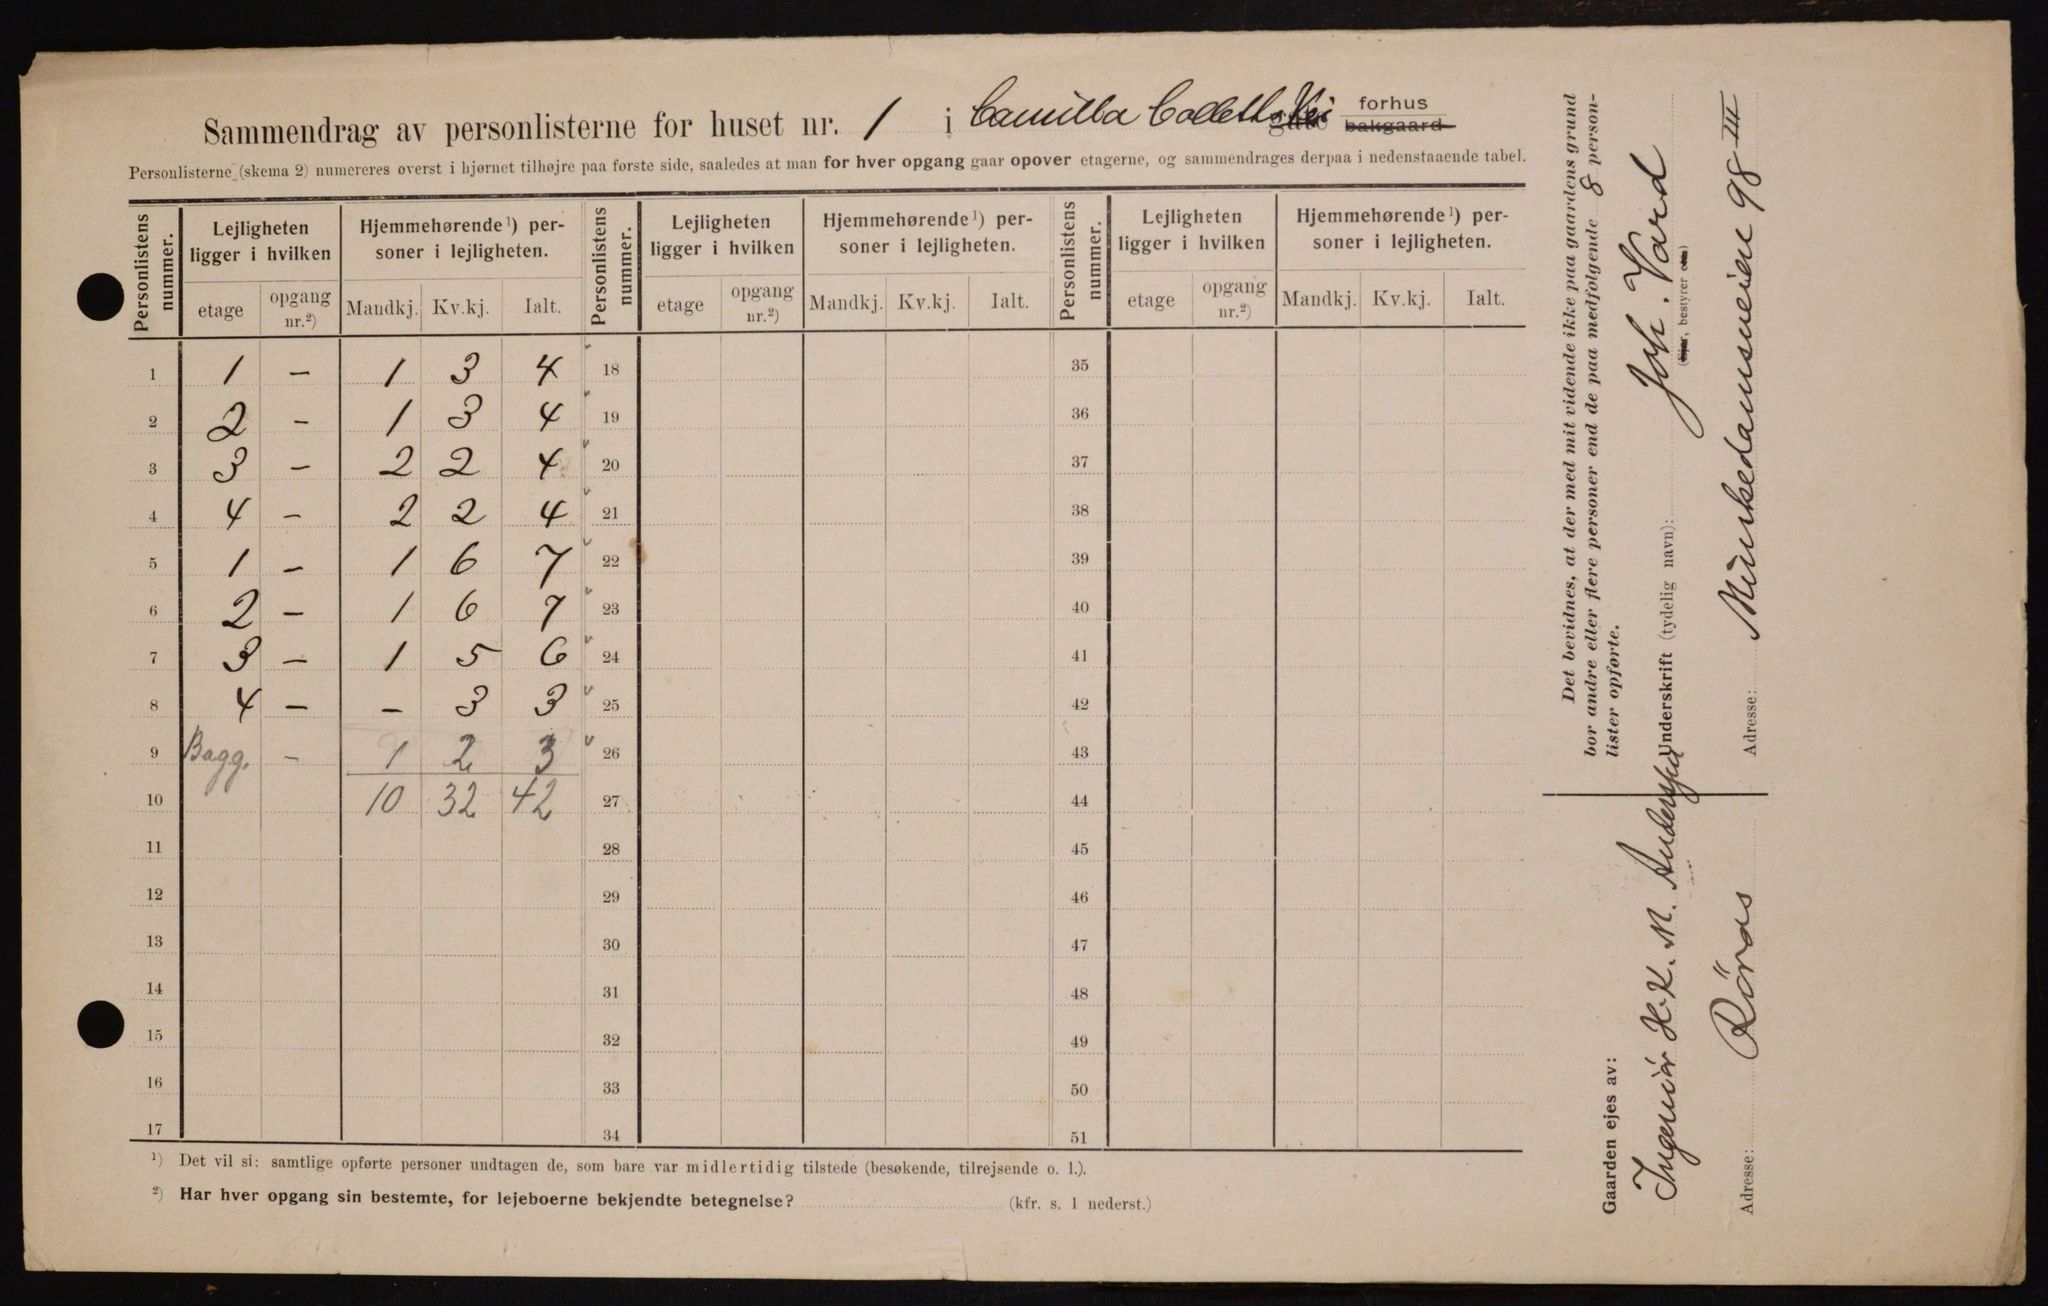 Sammendrag av personlisterne for huset nr. 1 i Camilla Colletts Vei gate forhus bakgaard
Personlisterne (skema 2) numereres øverst i hjørnet tilhøjre paa første side, saaledes at man for hver opgang gaar opover etagerne, og sammendrages derpaa i nedenstaaende tabel.
Personlistens nummer. Lejligheten ligger i hvilken Hjemmehørende ¹) personer i lejligheten. Personlistens nummer. Lejligheten ligger i hvilken Hjemmehørende ¹) personer i lejligheten. Personlistens nummer. Lejligheten ligger i hvilken Hjemmehørende ¹) personer i lejligheten.
etage opgang nr.²) Mandkj. Kv.kj. Ialt. etage opgang nr.²) Mandkj. Kv.kj. Ialt. etage opgang nr.²) Mandkj. Kv.kj. Ialt.
1 1 – 1 3 4 18 35
2 2 – 1 3 4 19 36
3 3 – 2 2 4 20 37
4 4 – 2 2 4 21 38
5 1 – 1 6 7 22 39
6 2 – 1 6 7 23 40
7 3 – 1 5 6 24 41
8 4 – – 3 3 25 42
9 Bagg. – 1 2 3 26 43
10 10 32 42 27 44
11 28 45
12 29 46
13 30 47
14 31 48
15 32 49
16 33 50
17 34 51
¹) Det vil si: samtlige opførte personer undtagen de, som bare var midlertidig tilstede (besøkende, tilrejsende o. l.).
²) Har hver opgang sin bestemte, for lejeboerne bekjendte betegnelse? (kfr. s. 1 nederst.)
Det bevidnes, at der med mit vidende ikke paa gaardens grund
bor andre eller flere personer end de paa medfølgende 8 person-
lister opførte.
Underskrift (tydelig navn): Joh. Vard
(Ejer, bestyrer etc.)
Adresse: Munkedamsveien 98 III
Gaarden ejes av:
Ingeniør H. K. M. Anderssen
Adresse: Röros